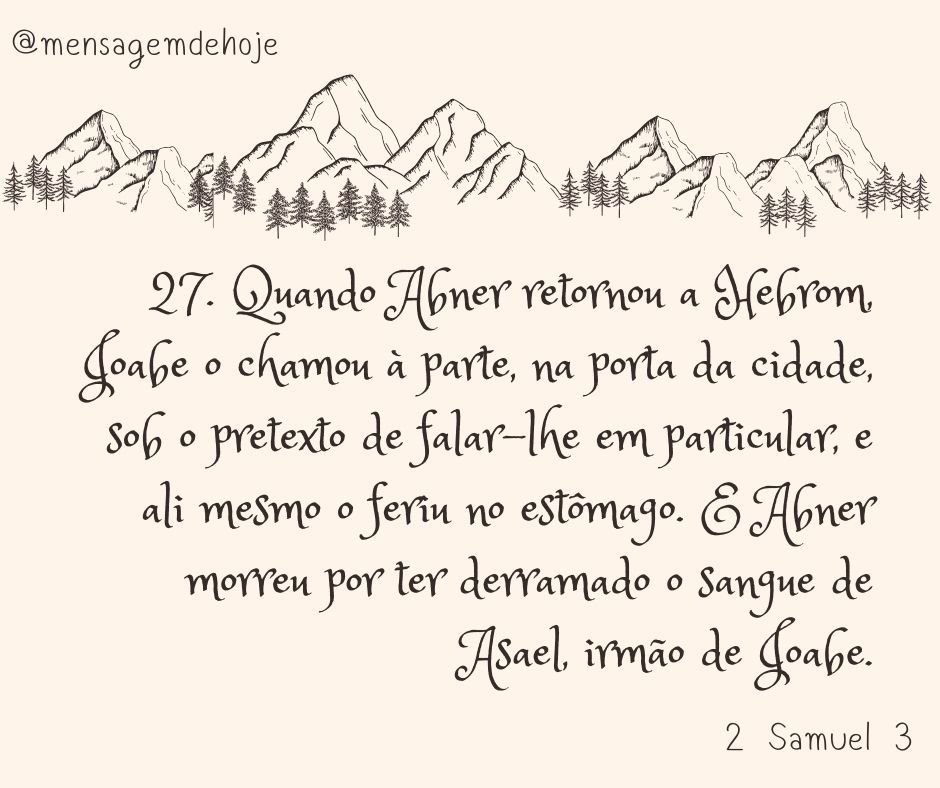 @mensagemdehoje
27. Quando Abner retornou a Hebrom,
Joabe o chamou à parte, na porta da cidade,
sob o pretexto de falar-lhe em particular, e
ali mesmo o feriu no estômago. E Abner
morreu por ter derramado o sangue de
Asael, irmão de Joabe.
2 Samuel 3